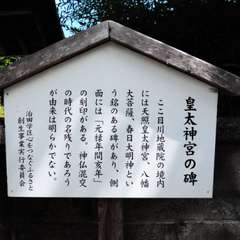 皇太神宮の碑
ここ日川地蔵院の境内
には天照皇太神宮、八幡
大菩薩、春日大明神とい
う銘のある碑があり、側
面には「元禄年間亥年」
の刻印がある。神仏混交
の時代の名残りであろう
が由来は明らかでない。
治田学区心をつなぐふるさと
創生事業実行委員会